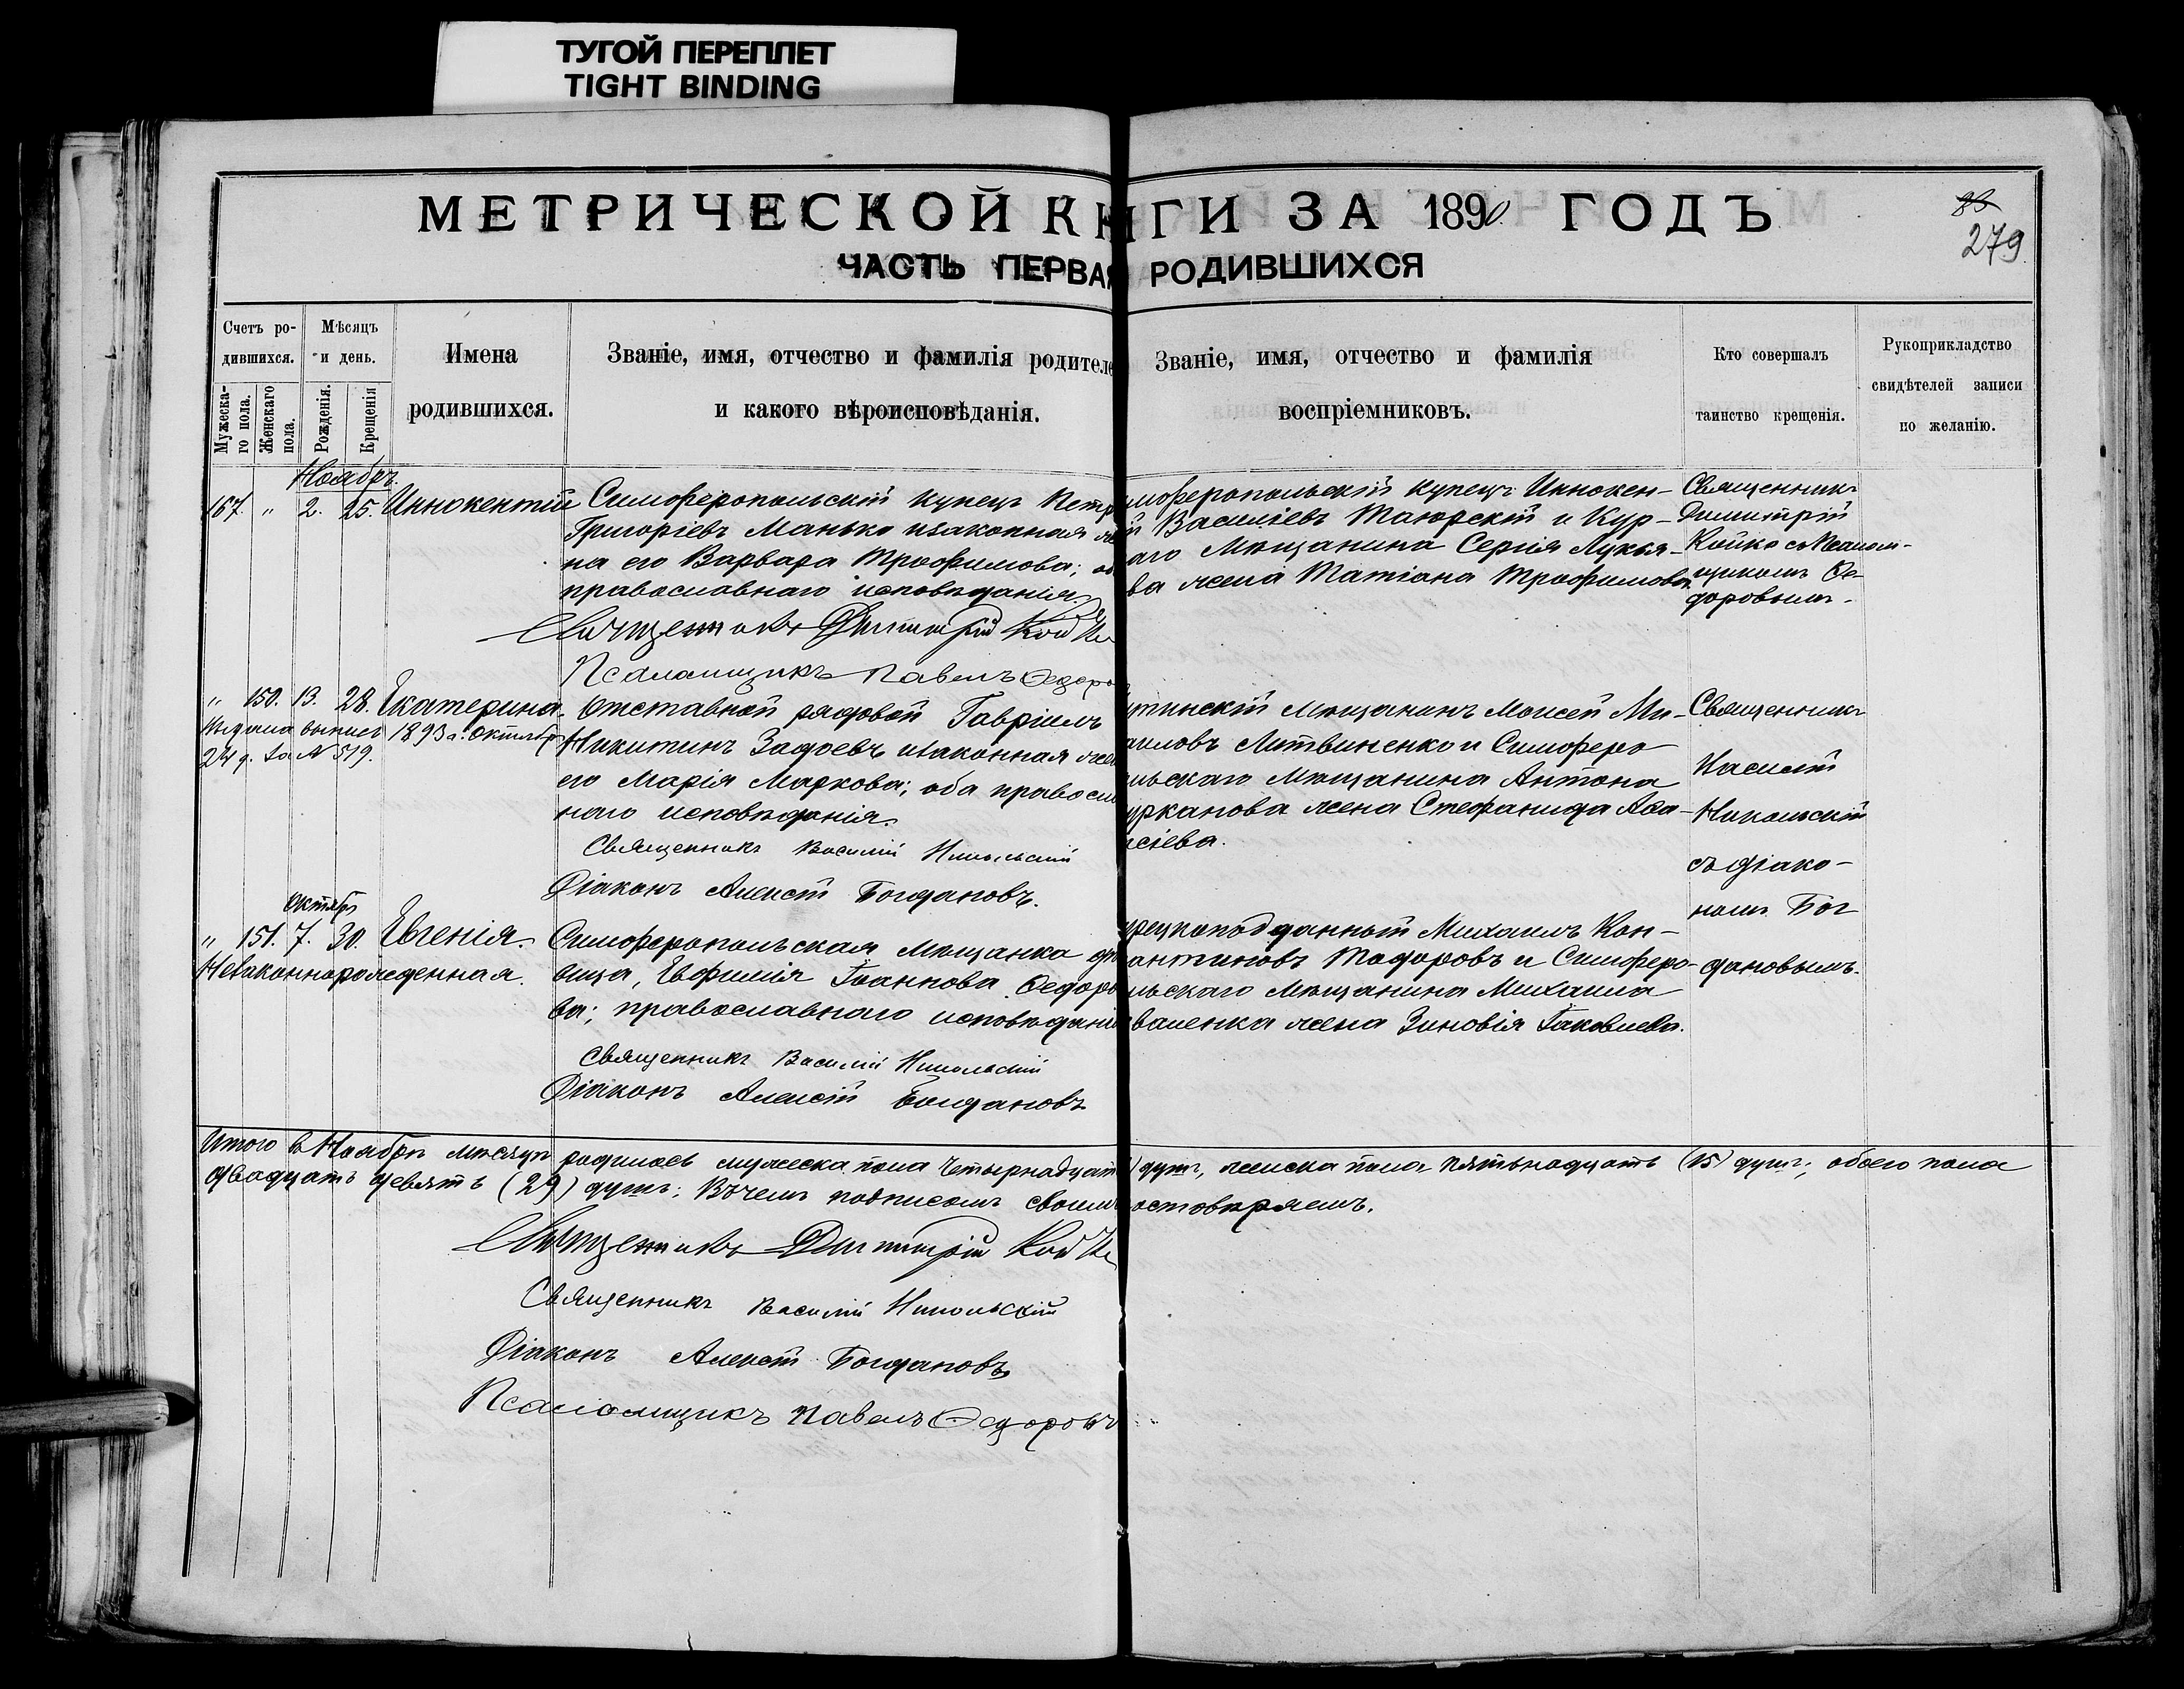 ТУГОЙ ПЕРЕПЛЕТ
TIGHT BINDING
МЕТРИЧЕСКОЙ КНИГИ ЗА 1890 ГОДЪ
ЧАСТЬ ПЕРВАЯ РОДИВШИХСЯ
85
279
Счетъ ро-
дившихся.
Мужеска-
го пола.
Женскаго
пола.
Мѣсяцъ
и день.
Рожденія.
Крещенія
Имена
родившихся.
Званіе, имя, отчество и фамилія родителе
и какого вѣроисповѣданія.
Званіе, имя, отчество и фамилія
воспріемниковъ.
Кто совершалъ
таинство крещенія.
Рукоприкладство
свидѣтелей записи
по желанію.
Ноябрь.
167. " 2. 25. Иннокентій
Симферопольскій купецъ Петр
Григоріевъ Манько изаконная же
на его Варвара Трофимова; об
православнаго исповѣданія
Священникъ Димитрій Койко
Псаломщикъ Павелъ Федоро
имферопольскій купецъ Иннокен-
й Василіевъ Таюрскій и Кур-
аго Мѣщанина Сергія Лукья-
ва жена Татіана Трофимова.
Священникъ
Димитрій
Койко съ Псалом-
щикомъ Фе-
доровымъ.
" 150. 13. 28. Екатерина.
Выдана выпись 1893 г. Октября
24 д. за № 519.
Отставной рядовой Гавріилъ
Никитинъ Задоевъ изаконная жен
его Марія Маркова; оба правосл
наго исповѣданія.
Священникъ Василій Никольскій
Діаконъ Алексѣй Богдановъ.
утинскій мѣщанинъ Моисей Ми-
аиловъ Литвиненко и Симферо
льскаго Мѣщанина Антона
урканова жена Стефанида Ава-
сіева.
Священникъ
Василій
Никольскій
съ діако-
номъ Бог
дановымъ.
Октябрь
" 151. 7. 30. Евгенія.
Незаконнорожденная.
Симферопольская Мѣщанка дѣ
вица, Евфимія Іоаннова Федоро
ва; православнаго исповѣдані
Священникъ Василій Никольскій
Діаконъ Алексій Богдановъ
рецкоподданный Михаилъ Кон-
антиновъ Тодоровъ и Симферо-
льскаго Мѣщанина Михаила
валенка жена Зиновія Іаковлева.
Итого въ Ноябрѣ мѣсяцѣ родилось мужеска пола Четырнадцат ) душъ, женска пола пятьнадцать (15) душъ; обоего пола
двадцать девять (29) душъ; Въ чемъ подписомъ своимъ остовѣряемъ.
Священникъ Димитрій Койко
Священникъ Василій Никольскій
Діаконъ Алексѣй Богдановъ
Псаломщикъ Павелъ Федоровъ